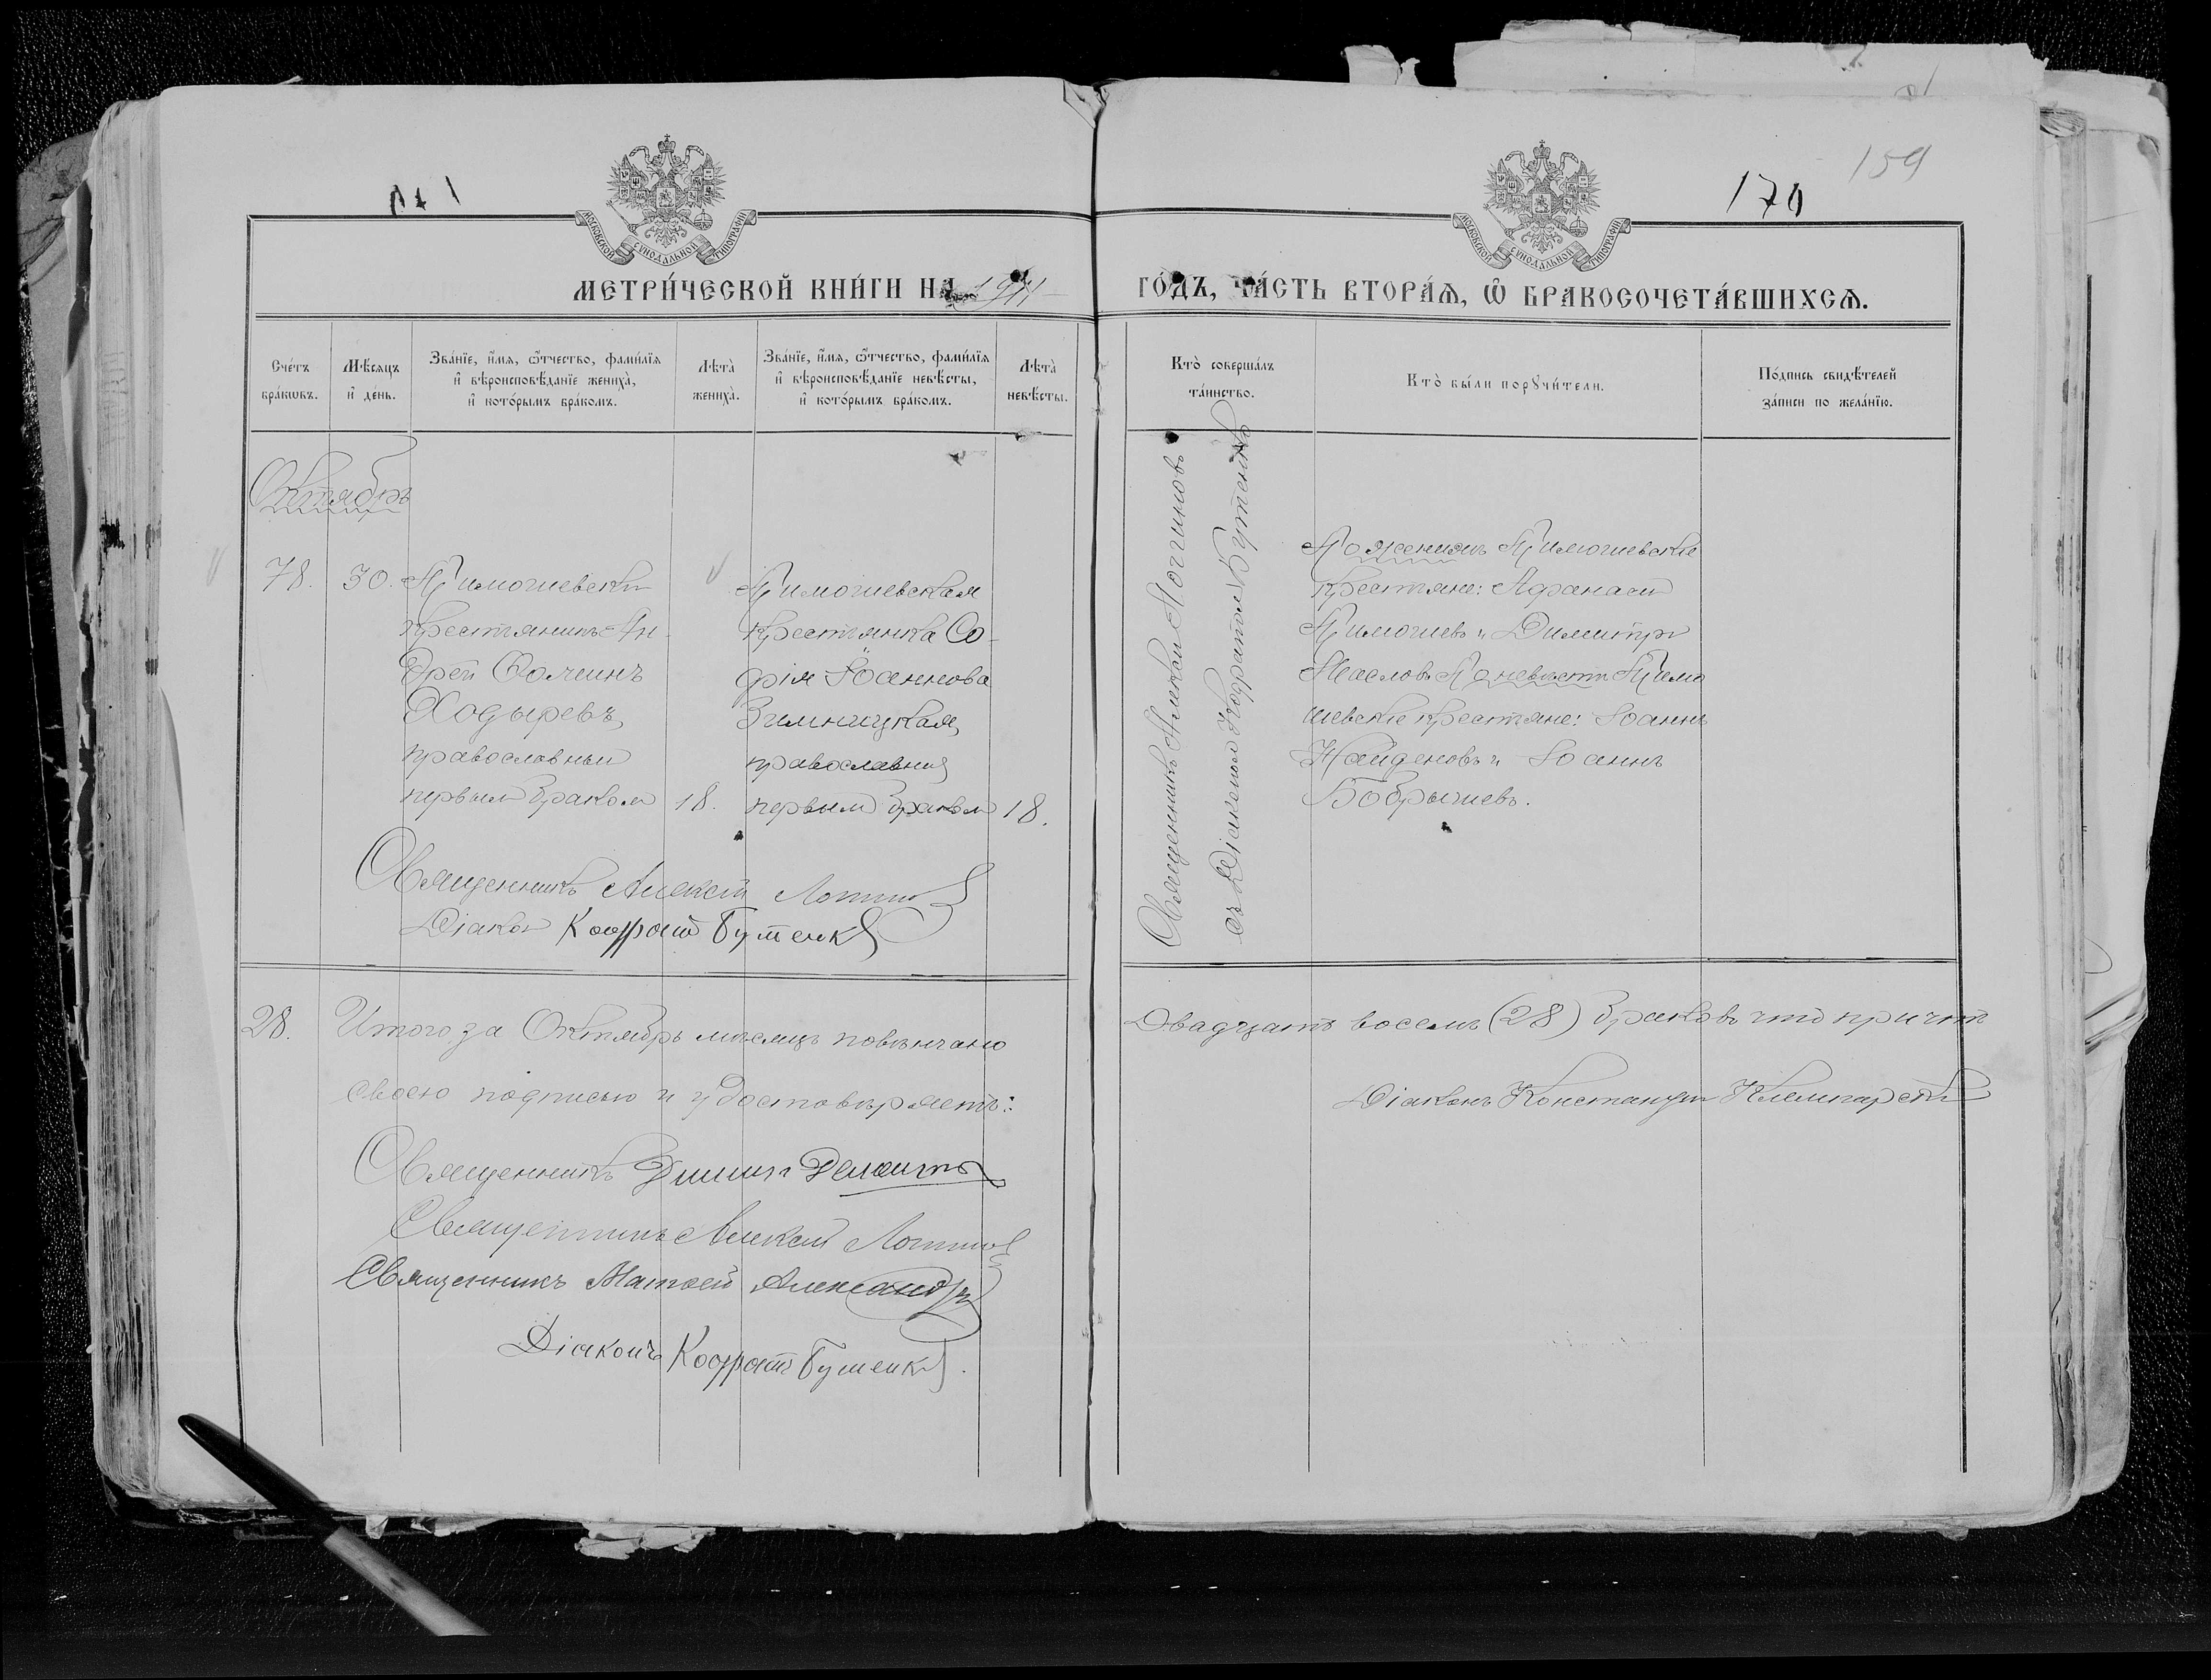 159
170
МОСКОВСКОЙ СѴНОДАЛЬНОЙ ТИПОГРАФІИ
МОСКОВСКОЙ СѴНОДАЛЬНОЙ ТИПОГРАФІИ
МЕТРИ́ЧЕСКОЙ КНИ́ГИ НА 1911
ГО́ДЪ, ЧА́СТЬ ВТОРА́Ѧ, Ѡ҆ БРАКОСОЧЕТА́ВШИХСѦ.
Сче́тъ бра́кѡвъ.
Мѣ́сѧцъ и҆ де́нь.
Зва́нїе, и҆́мѧ, ѻ҆́тчество, фамѝлїѧ
и҆ вѣроисповѣ́данїе жениха̀,
и҆ кото́рымъ бра́комъ.
Лѣта̀ жениха̀.
Зва́нїе, и҆́мѧ, ѻ҆́тчество, фамѝлїѧ
и҆ вѣроисповѣ́данїе невѣ́сты,
и҆ кото́рымъ бра́комъ.
Лѣта̀ невѣ́сты.
Кто̀ соверша́лъ та́инство.
Кто̀ бы́ли порꙋчи́тели.
По́дпись свидѣ́телей
за́писи по жела́нїю.
Октябрь
78.
30.
крестьянинъ Ан
дрей
Ходыревъ,
православный
первымъ бракомъ
18.
крестьянка Со-
фія Іоаннова
Зимницкая,
православная
первымъ бракомъ
18.
Священникъ Алексѣй Логиновъ
съ Діакономъ Кодратомъ Бутенко
По женихѣ
крестьяне: Афанасій
и Димитрій
Масловъ По невѣстѣ
крестьяне: Іоаннъ
Найденовъ и Іоаннъ
Бобрышевъ.
Священникъ Алексѣй Логинов
Діакон Кодрат Бутенко
28.
Итого за Октябрь мѣсяцъ повѣнчано
Двадцать восемь (28) браковъ что причтъ
своею подписью и удостовѣряетъ:
Діаконъ Константин
Священникъ
Священникъ Алексѣй Логинов
Священникъ Матѳей Александр
Діаконъ Кодратъ Бутенко.